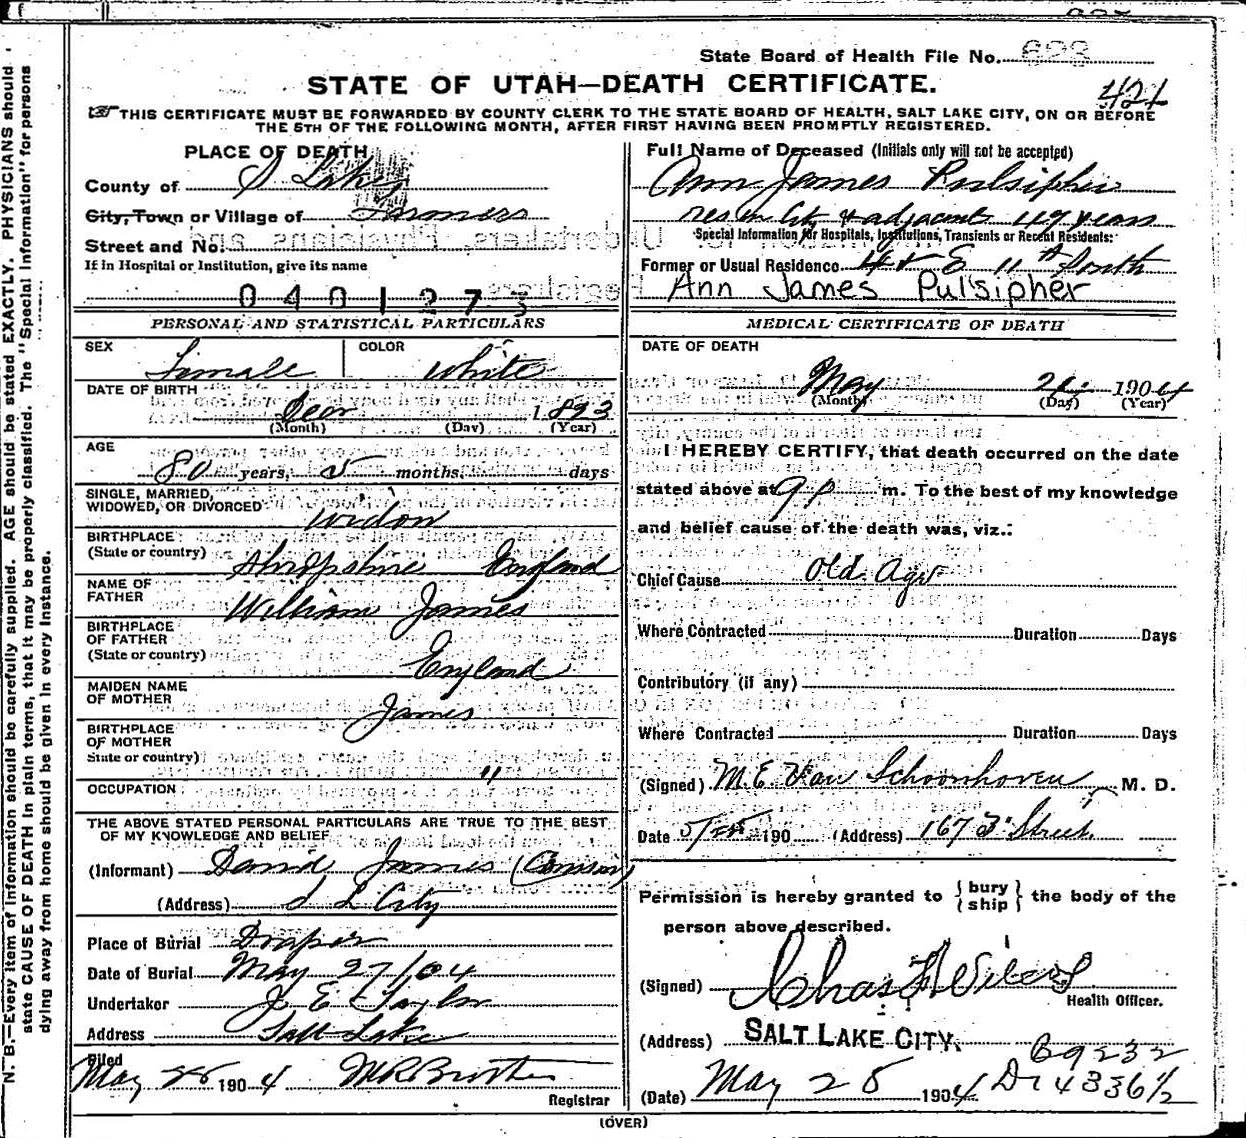 State Board of Health File No. 623
STATE OF UTAH—DEATH CERTIFICATE.
421
THIS CERTIFICATE MUST BE FORWARDED BY COUNTY CLERK TO THE STATE BOARD OF HEALTH, SALT LAKE CITY, ON OR BEFORE
THE 5TH OF THE FOLLOWING MONTH, AFTER FIRST HAVING BEEN PROMPTLY REGISTERED.
N. B.—Every item of information should be carefully supplied. AGE should be stated EXACTLY. PHYSICIANS should
state CAUSE OF DEATH in plain terms, that it may be properly classified. The "Special Information" for persons
dying away from home should be given in every instance.
PLACE OF DEATH
County of S Lake
City, Town or Village of Farmers
Street and No.
If in Hospital or Institution, give its name
0401273
PERSONAL AND STATISTICAL PARTICULARS
SEX Female COLOR White
DATE OF BIRTH
Decr 1893
(Month) (Day) (Year)
AGE
80 years, 5 months, days
SINGLE, MARRIED,
WIDOWED, OR DIVORCED Widow
BIRTHPLACE
(State or country) Shropshire England
NAME OF
FATHER William James
BIRTHPLACE
OF FATHER
(State or country) England
MAIDEN NAME
OF MOTHER James
BIRTHPLACE
OF MOTHER
State or country) "
OCCUPATION
THE ABOVE STATED PERSONAL PARTICULARS ARE TRUE TO THE BEST
OF MY KNOWLEDGE AND BELIEF
(Informant) David James (Cousin)
(Address) S L City
Place of Burial Draper
Date of Burial May 27/04
Undertaker J E Taylor
Address Salt Lake
Filed
May 28 1904
Registrar
Full Name of Deceased (Initials only will not be accepted)
Ann James Pulsipher
res in City & adjacent 49 years
Special Information for Hospitals, Institutions, Transients or Recent Residents:
Former or Usual Residence 4 & E 11th South
Ann James Pulsipher
MEDICAL CERTIFICATE OF DEATH
DATE OF DEATH
May 1904
(Month) (Day) (Year)
I HEREBY CERTIFY, that death occurred on the date
stated above at 9 P m. To the best of my knowledge
and belief cause of the death was, viz.:
Chief Cause Old Age
Where Contracted Duration Days
Contributory (if any)
Where Contracted Duration Days
(Signed) M. E. Van Schoonhoven M. D.
Date 190 (Address) 167 3d Street
Permission is hereby granted to { bury ship } the body of the
person above described.
(Signed) Chas F Wilcox
Health Officer.
(Address) SALT LAKE CITY.
B 9232
(Date) May 28 1904 D 14336 1/2
(OVER)